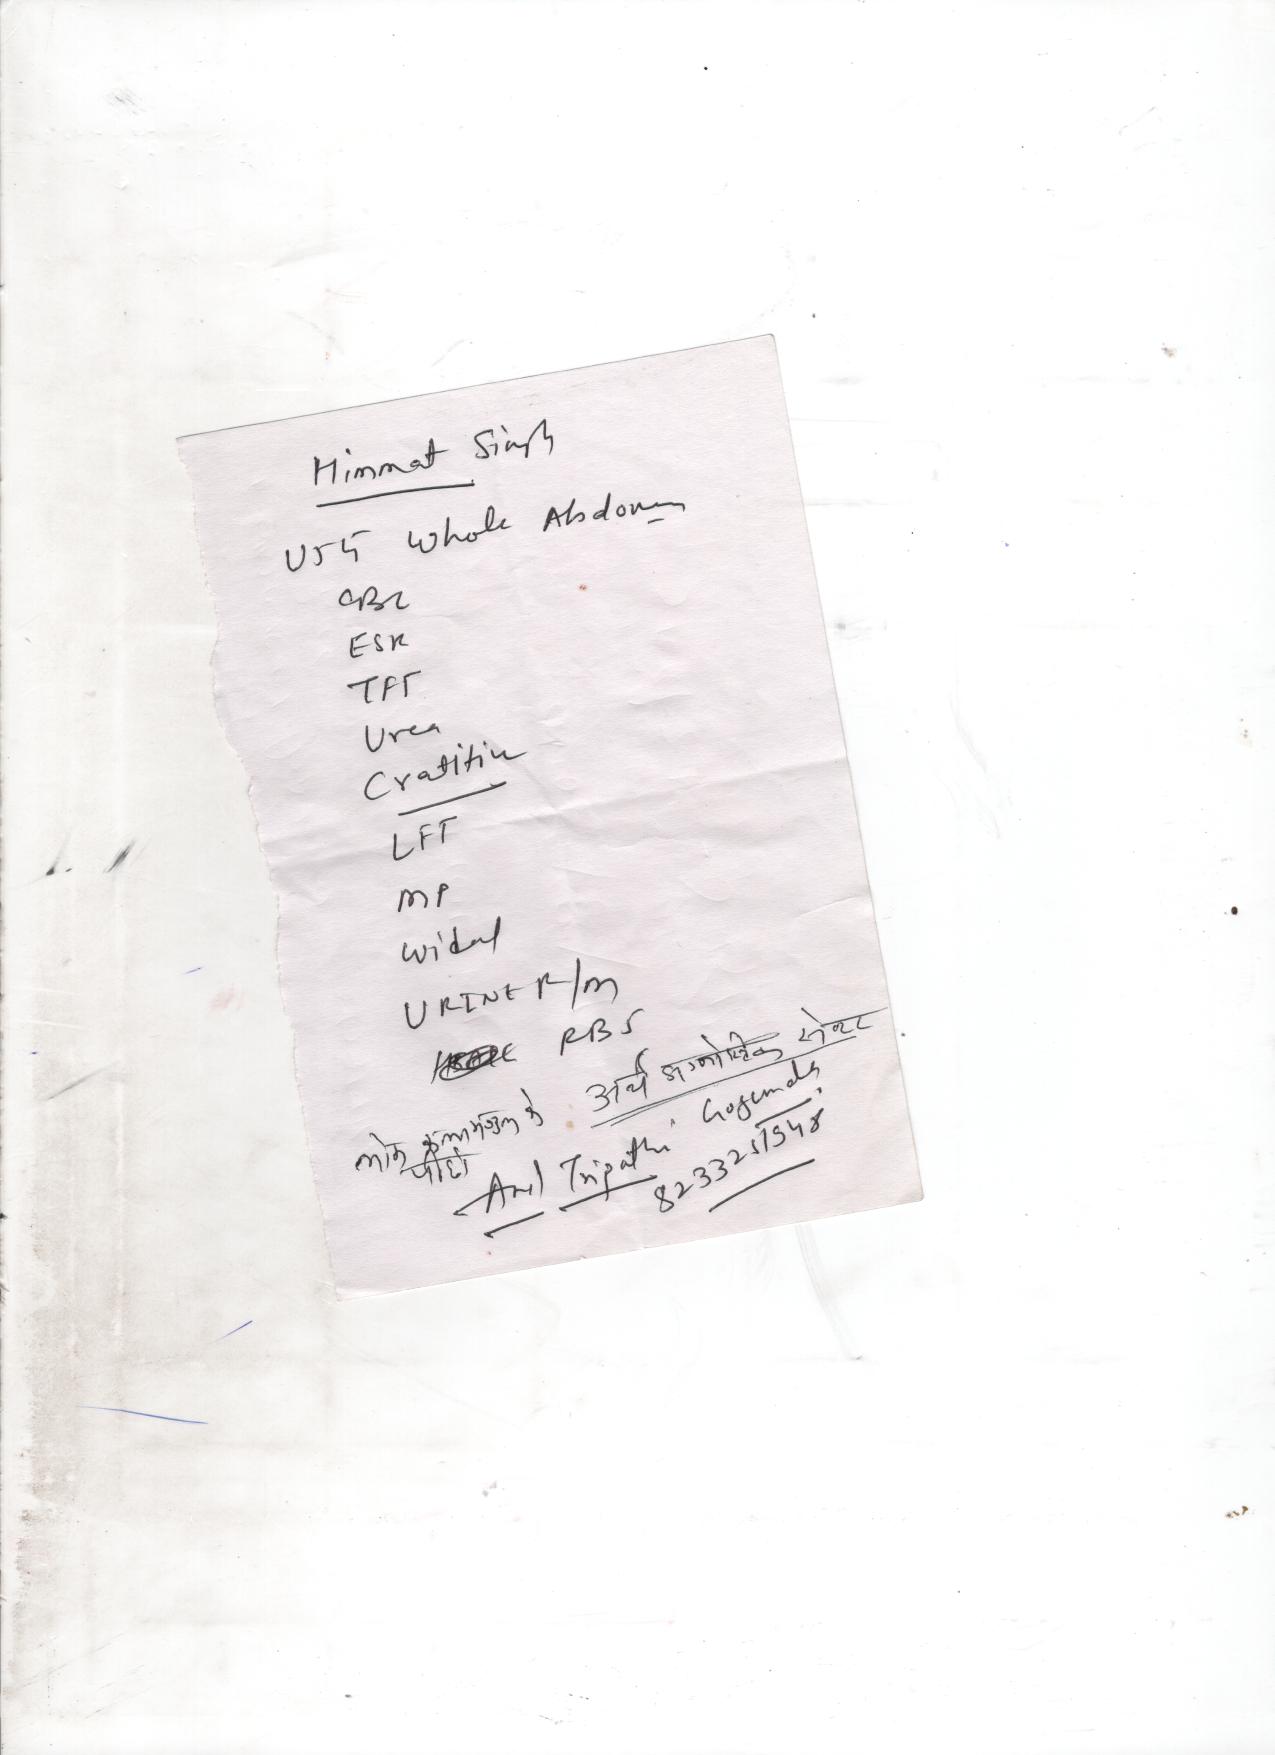 Himmat Singh
USG Whole Abdomen
CBC
ESR
TFT
Urea
Cratitin
LFT
MP
Widal
URINE R/M
RBS
अर्थ डाग्नोस्टिक सेन्टर
के पीछे
Anil Tripathi Gogunda
8233251548